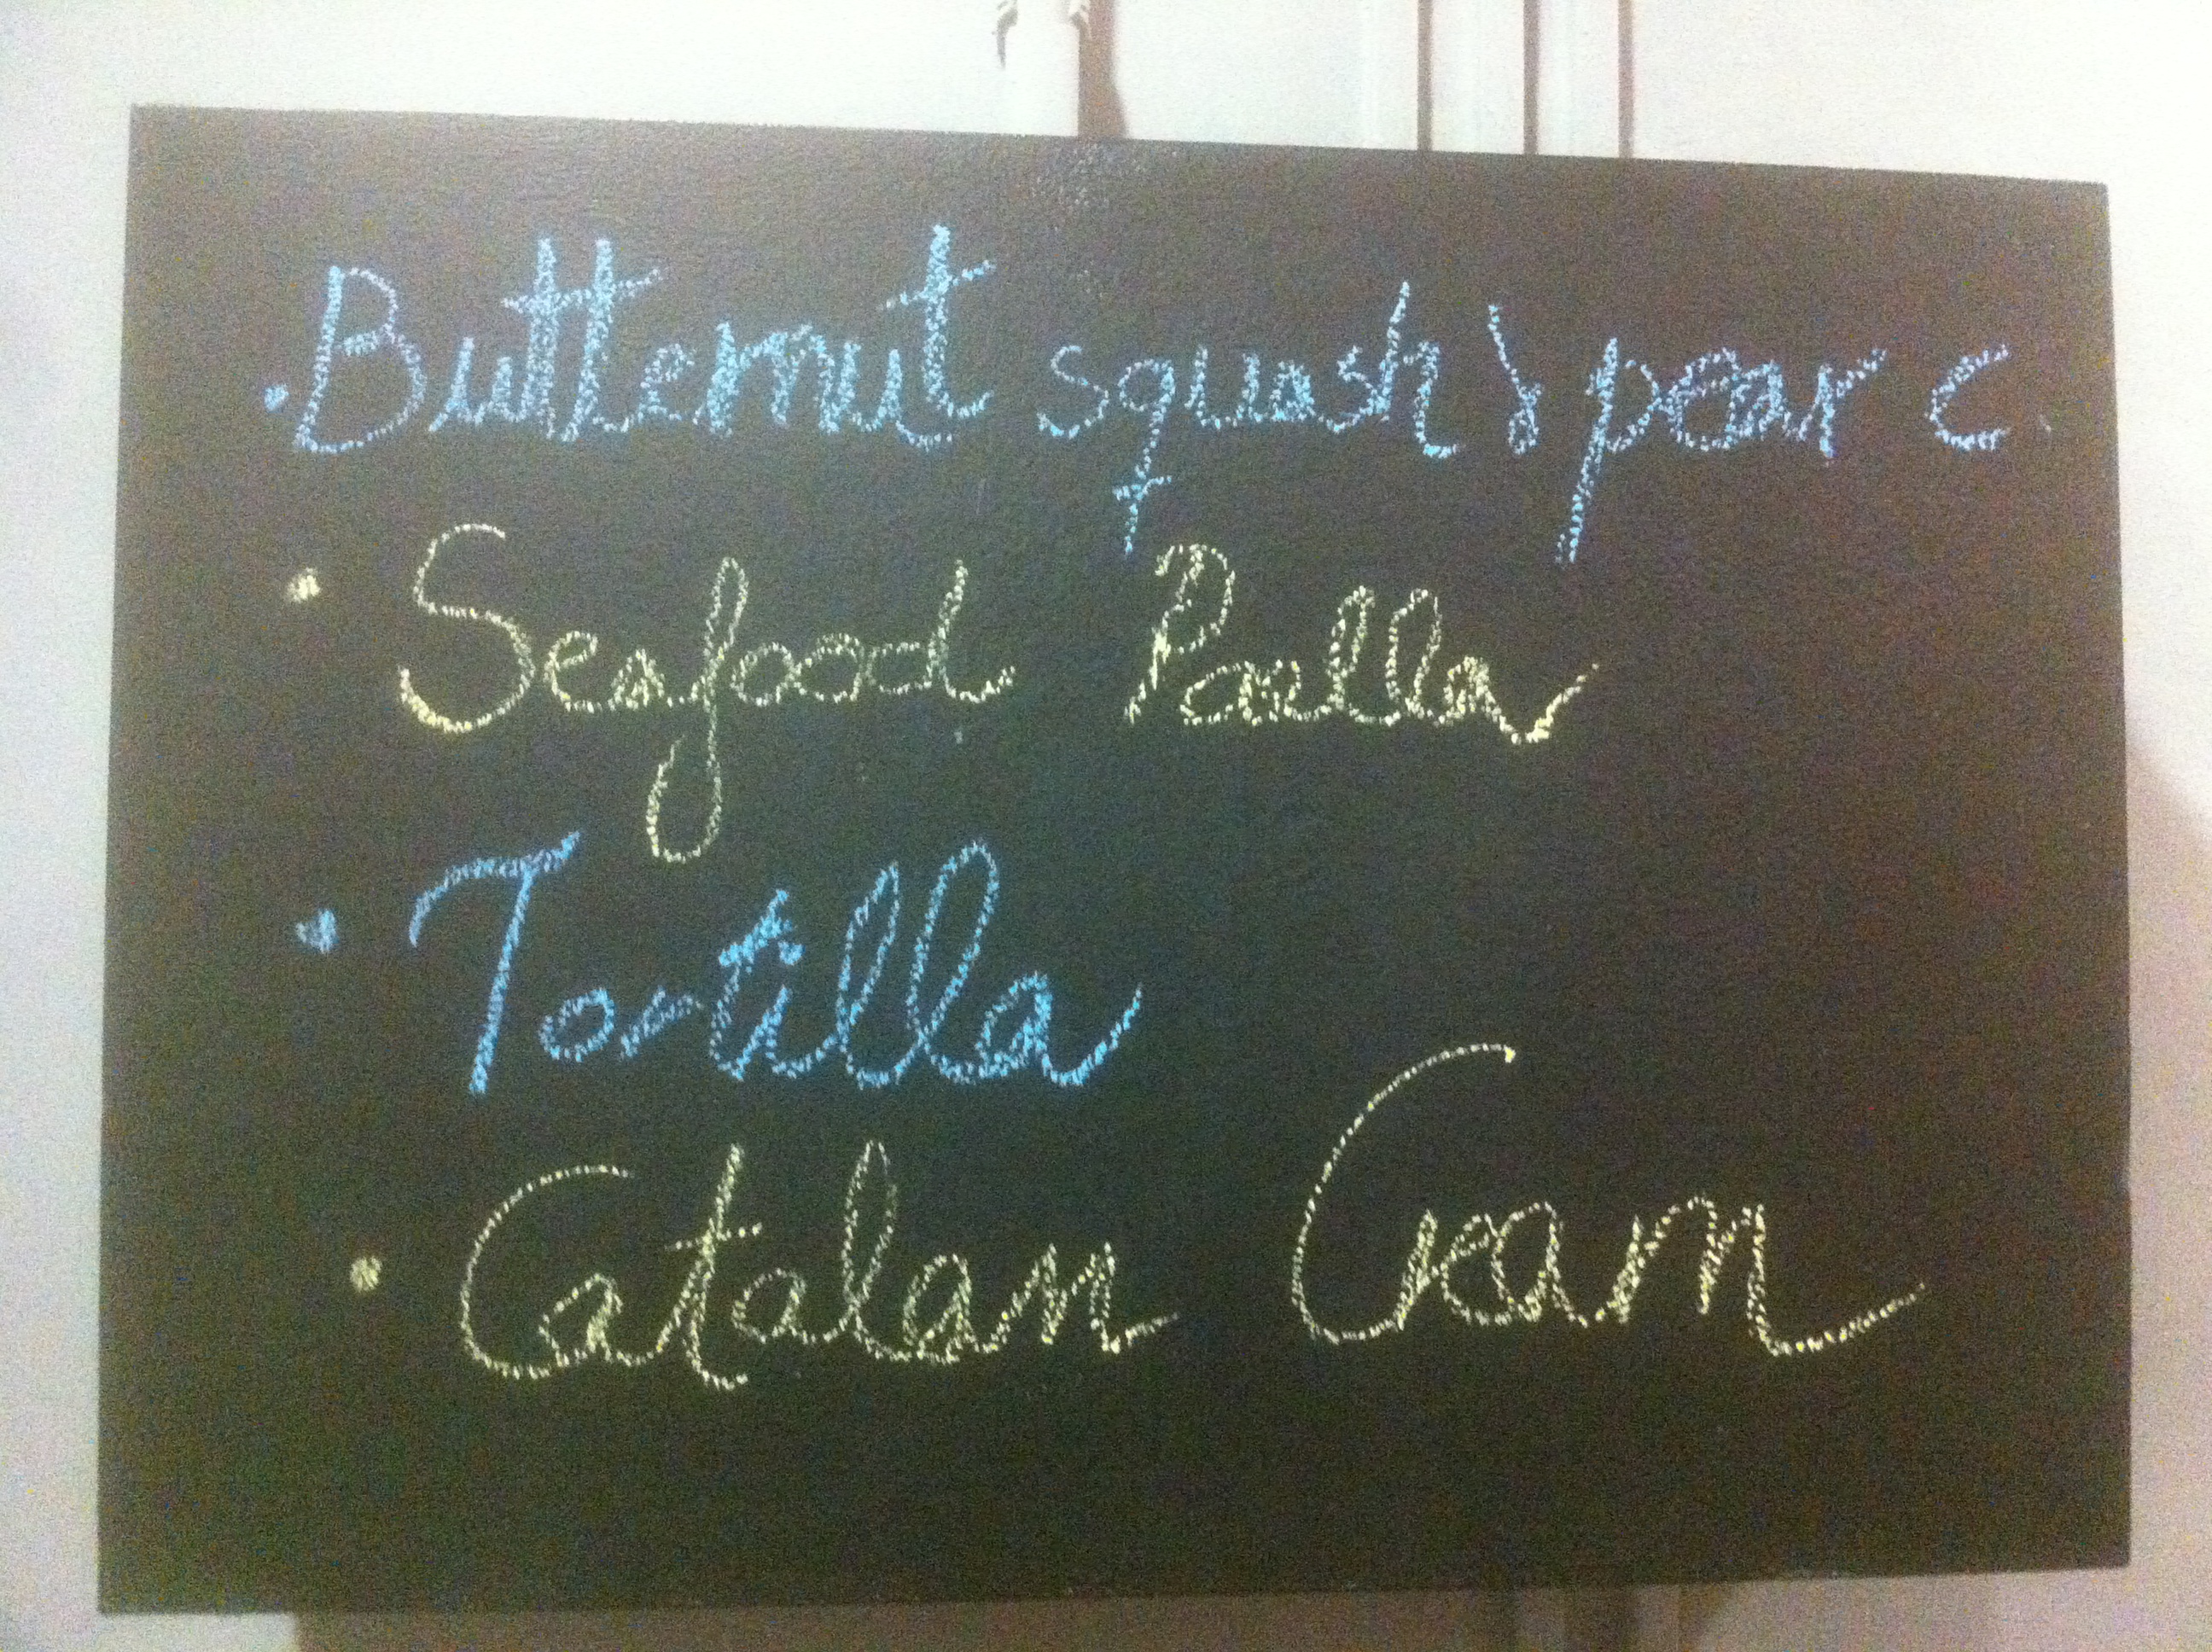 · Butternut squash & pear c.
· Seafood Paella
· Tortilla
· Catalan Cream